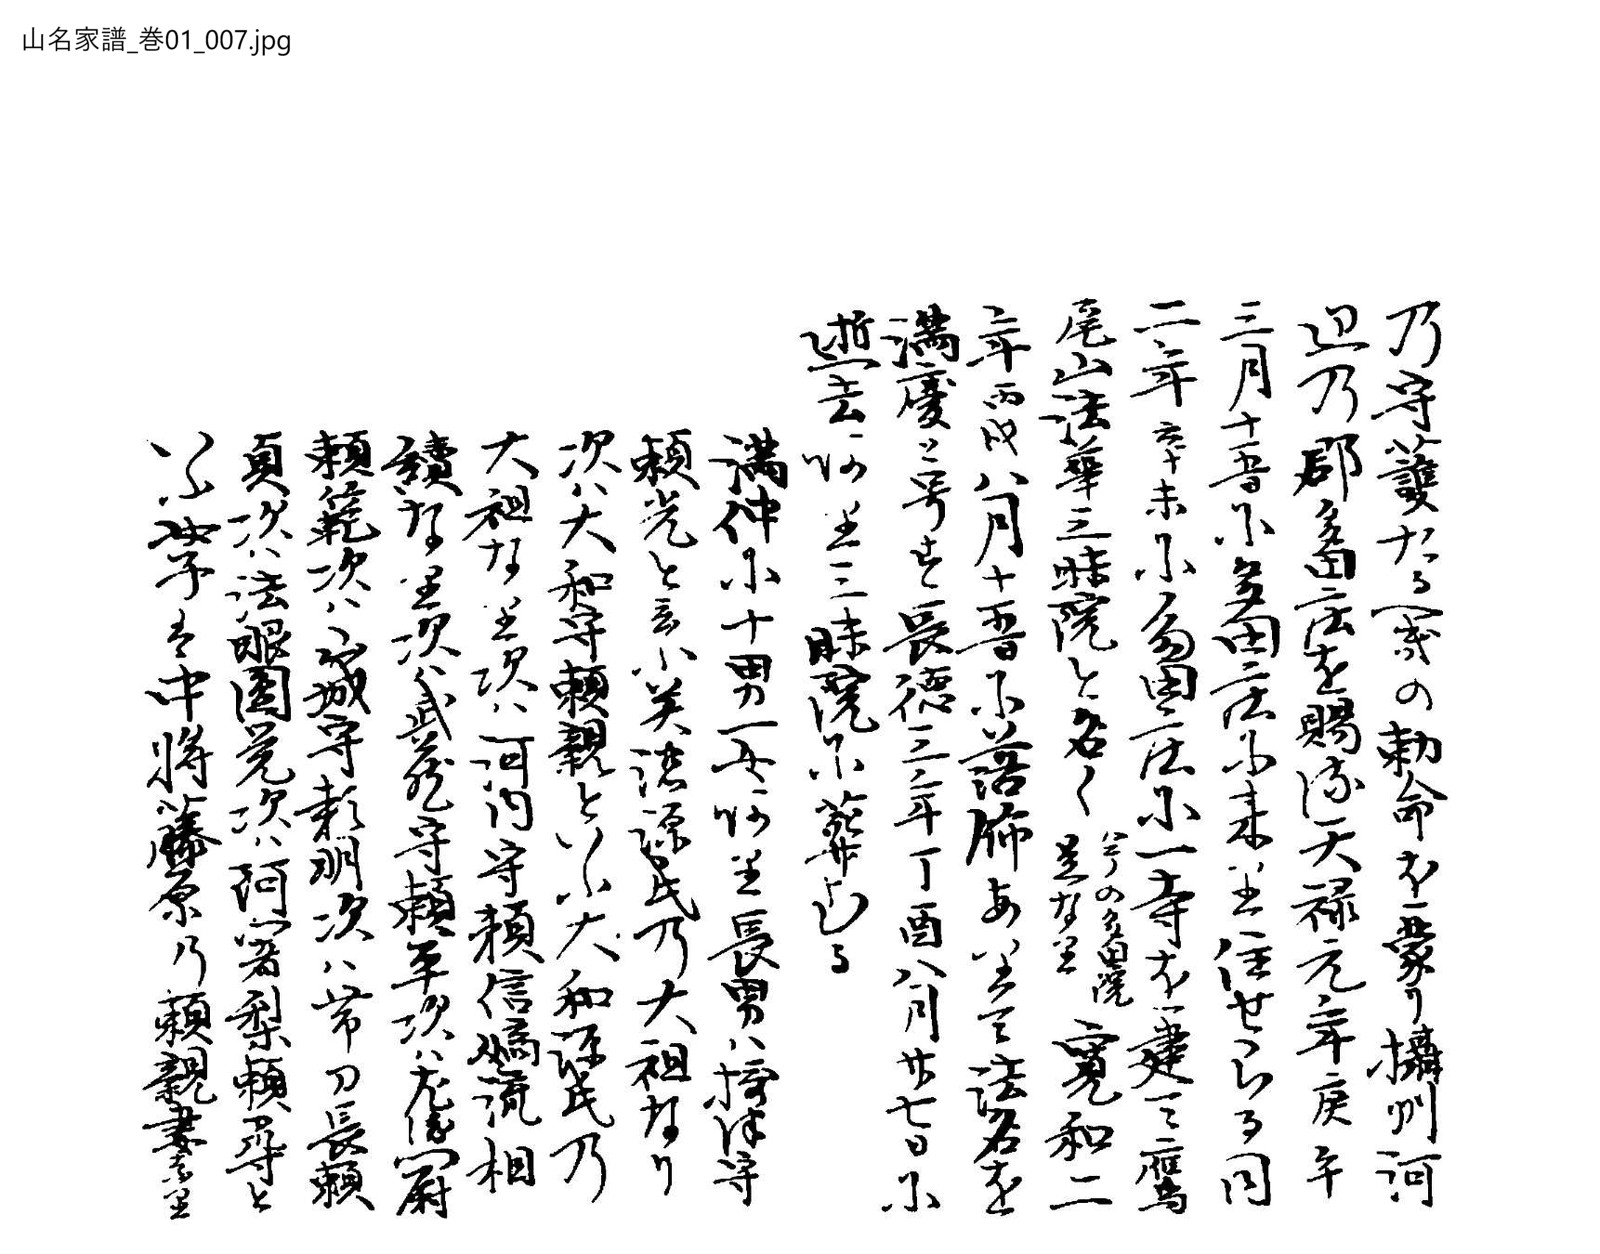 山名家譜_巻01_007.jpg
乃守護たるへきの勅命を蒙り攝州河
辺乃郡多田庄を賜ふ天禄元年庚午
三月十五日小多田庄に来り住せらる同
二年辛未小多田庄小一寺を建て鷹
尾山法華三昧院と名く今の多田院是なり寛和二
年丙戌八月十五日小落飾あり而法名を
満慶と号す長徳三年丁酉八月廿七日小
逝去あり三昧院小葬むる
満仲小十男一女あり長男ハ摂津守
頼光と云ふ美濃源氏乃大祖なり
次ハ大和守頼親といふ大和源氏乃
大祖なり次ハ河内守頼信嫡流相
續なり次ハ武蔵守頼平次ハ左衛門尉
頼範次ハ 城守頼明次ハ帯刀長頼
貞次ハ法眼圓覚次ハ阿闍梨頼尋と
いふ女子は中将藤原乃頼親妻なり